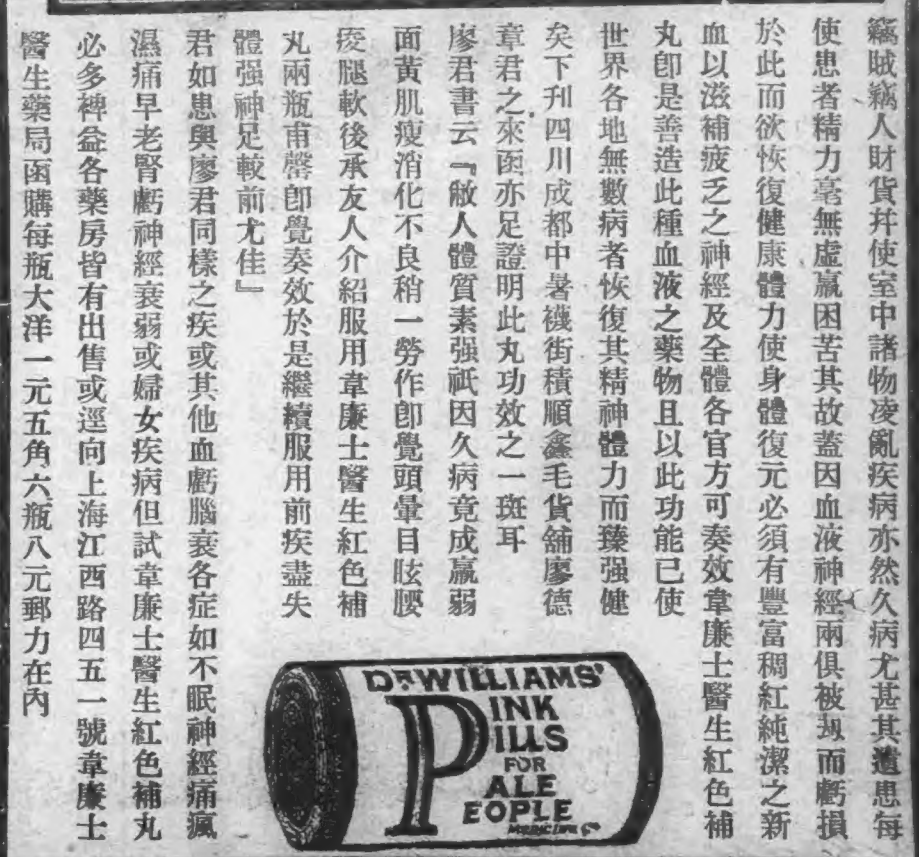 竊賊竊人財貨幷使室中諸物凌亂疾病亦然久病尤甚其遺患每
使患者精力毫無虛羸困苦其故蓋因血液神經兩俱被刼而虧損
於此而欲恢復健康體力使身體復元必須有豐富稠紅純潔之新
血以滋補疲乏之神經及全體各官方可奏效韋廉士醫生紅色補
丸卽是善造此種血液之藥物且以此功能已使
世界各地無數病者恢復其精神體力而臻强健
矣下刊四川成都中暑襪街積順鑫毛貨舖廖德
章君之來函亦足證明此丸功效之一斑耳
廖君書云『敝人體質素强祇因久病竟成羸弱
面黃肌瘦消化不良稍一勞作卽覺頭暈目眩腰
痠腿軟後承友人介紹服用韋廉士醫生紅色補
丸兩瓶甫罄卽覺奏效於是繼續服用前疾盡失
體强神足較前尤佳』
君如患與廖君同樣之疾或其他血虧腦衰各症如不眠神經痛瘋
濕痛早老腎虧神經衰弱或婦女疾病但試韋廉士醫生紅色補丸
必多裨益各藥房皆有出售或逕向上海江西路四五一號韋廉士
醫生藥局函購每瓶大洋一元五角六瓶八元郵力在內
DR WILLIAMS'
PINK
PILLS
FOR
PALE
PEOPLE
MEDICINE Co